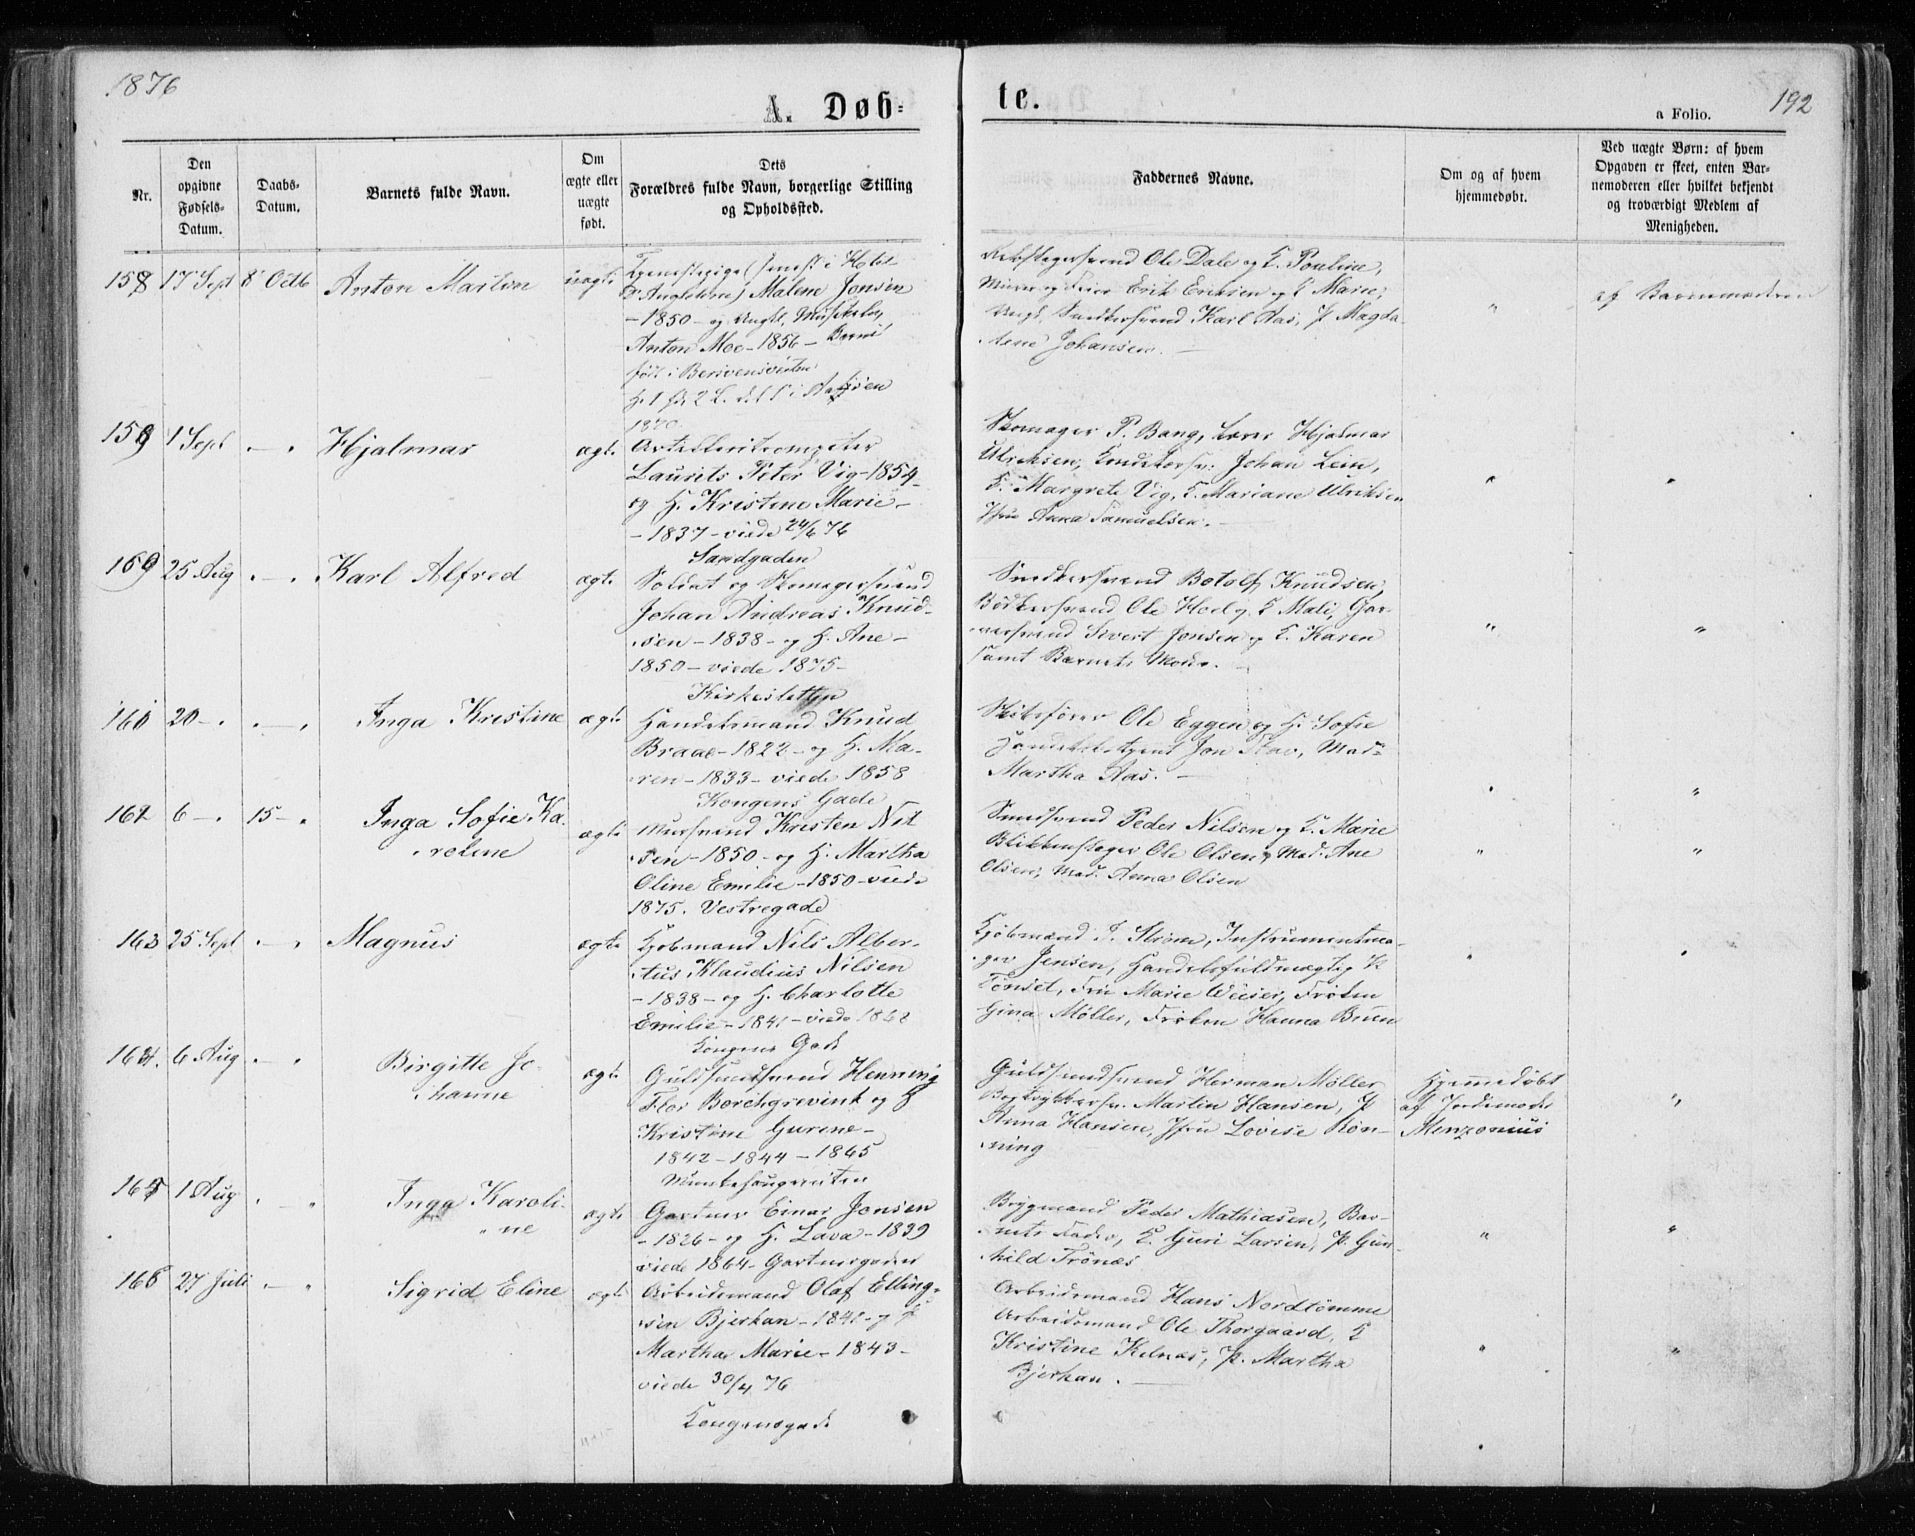 1876
A. Døb-
te.
192
a Folio.
Nr.
Den
opgivne
Fødsels-
Datum.
Daabs-
Datum.
Barnets fulde Navn.
Om
ægte eller
uægte
født.
Dets
Forældres fulde Navn, borgerlige Stilling
og Opholdssted.
Faddernes Navne.
Om og af hvem
hjemmedøbt.
Ved uægte Børn: af hvem
Opgaven er skeet, enten Bar-
nemoderen eller hvilket bekjendt
og troværdigt Medlem af
Menigheden.
158 17 Sept 8 Octb Anton Martin uægte
Tjenestepige (senest i Hotel
D'Angleterre) Malene Jonsen
- 1850 - og Ungk. Musikelev
Anton Moe - 1856 - Barnet
født i
1870.
Ole Dale og K. Pauline,
Murer og Erik Eriksen og K Marie,
Ungk. Snedkersvend Karl Aas, P. Magda
lene Johansen. -
"
af Barnemoderen
159 1 Sept - " Hjalmar ægte
Artilleritrompeter
Laurits Peter Vig - 1854 -
og H. Kristine Marie -
- 1837 - viede 24/6 76
Sandgaden
Skomager P. Bang, Hjalmar
Ulriksen, Johan Lein,
K. Margrete Vig, K. Mariane Ulriksen
Jfru Anna Samuelsen. -
160 25 Aug " - " Karl Alfred ægte
Soldat og Skomagersvend
Johan Andreas Knud-
sen - 1838 - og H. Ane -
1850 - viede 1875 -
Kirkesletten
Snedkersvend Botolf Knudsen,
Bødkersvend Ole Hoel og K Mali, Gar-
versvend Sivert Jonsen og K. Karen
samt Barnets Moder. -
161 20 - " " - " Inga Kristine ægte
Handelsmand Knud
Braae - 1822 - og H. Ma-
ren - 1833 - viede 1858
Kongens Gade
Skibsfører Ole Eggen og H. Sofie
Agent Jon Stav, Mad.
Martha Aas. -
162 6 - " 15 - " Inga Sofie Ka-
roline ægte
Mursvend Kristen Nil
sen - 1850 - og H. Martha
Oline Emilie - 1850 - viede
1875. Vestregade
Smedsvend Peder Nilsen og K. Marie
Blikkenslager Ole Olsen, Mad. Ane
Olsen, Mad. Anna Olsen
163 25 Sept " - " Magnus ægte
Kjøbmand Nils Alber-
tus Klaudius Nilsen
- 1838 - og H. Charlotte
Emilie - 1841 - viede 1868
Kongens Gade
Kjøbmand Strøm, Instrumentma-
ger Jensen, Handelsfuldmægtig K
Tønset, Fru Marie Weiser, Frøken
Gina Møller, Frøken Hanna Bruun
164. 6 Aug " - " Birgitte Jo-
hanne ægte
Guldsmedsvend Henning
Flor Borchgrevink og H
Kristine Gurine -
1842 - 1844 - 1865
Munkehaugveiten
Guldsmedsvend Herman Møller
Bogtrykkersv. Martin Hansen, P
Anna Hansen, Jfru Lovise Røn-
ning
Hjemmedøbt
af Jordemoder
Menzonius
165 1 Aug " - " Inga Karoli-
ne ægte
Gartner Einar Jonsen
- 1826 - og H. Lava - 1839
viede 1864 - Gartnergaden
Bryggmand Peder Mathiasen, Bar-
nets Fader, K. Guri Larsen, P. Gun-
hild Trønæs
166 27 Juli " - " Sigrid Eline ægte
Arbeidsmand Olaf Elling-
sen Bjerkan - 1841 - og H
Martha Marie - 1843 -
viede 30/4 76
Kongensgade
Arbeidsmand Hans Nordtømme
Arbeidsmand Ole Thorgaard, K
Kristine Kelnæs, P. Martha
Bjerkan. -